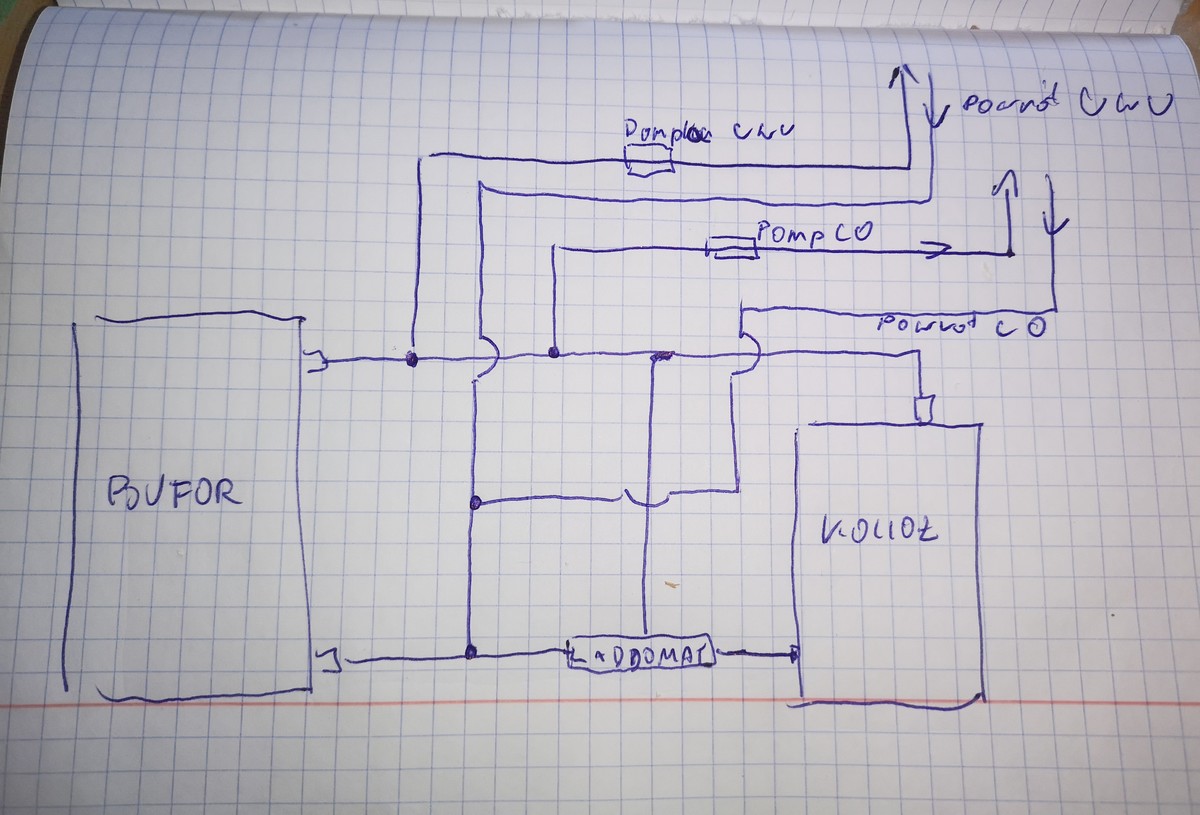 Pompka CWU
Powrót CWU
Pomp CO
Powrót CO
BUFOR
KOCIOŁ
LADDOMAT